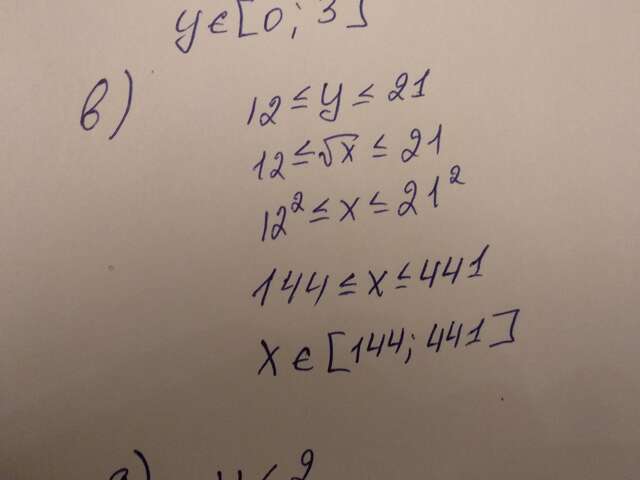 y∈[0; 3]
в) 12 ≤ y ≤ 21
12 ≤ √x ≤ 21
12² ≤ x ≤ 21²
144 ≤ x ≤ 441
x ∈ [144; 441]